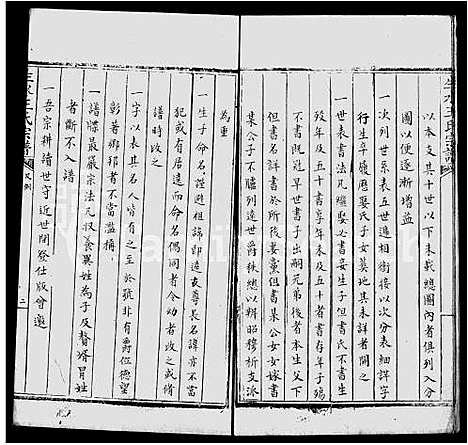 以本支其十世以下未載總圖內者俱列入分
圖以便逐漸增益
一次列世系表五世遞相銜接以次分表細詳字
行生卒履歷娶氏子女葬地其未詳者闕之
一世表書法凡繼娶必書妾生子但書氏不書生
歿年及五十書享年未及五十者書存年子殤
而未冠諱早世書子出嗣兄弟書本生父下
書嗣子於所後妻黨但書某公女女嫁書
某公子不臚列達世爵秩總以輯昭穆析支派
為重
一生子命名謹避祖諱即遠支尊長名諱亦不當
犯或有居遠而命名偶同者令幼者改或俟修
譜時改之
一字以表其名人皆有之至於號非有爵位德望
彰著鄉邦者不當濫稱
一譜牒最嚴宗法凡收養異姓為子及贅壻冒姓
者斷不入譜
一吾宗耕讀世守近世閉登仕版會邀
三水王氏宗譜 凡例
二